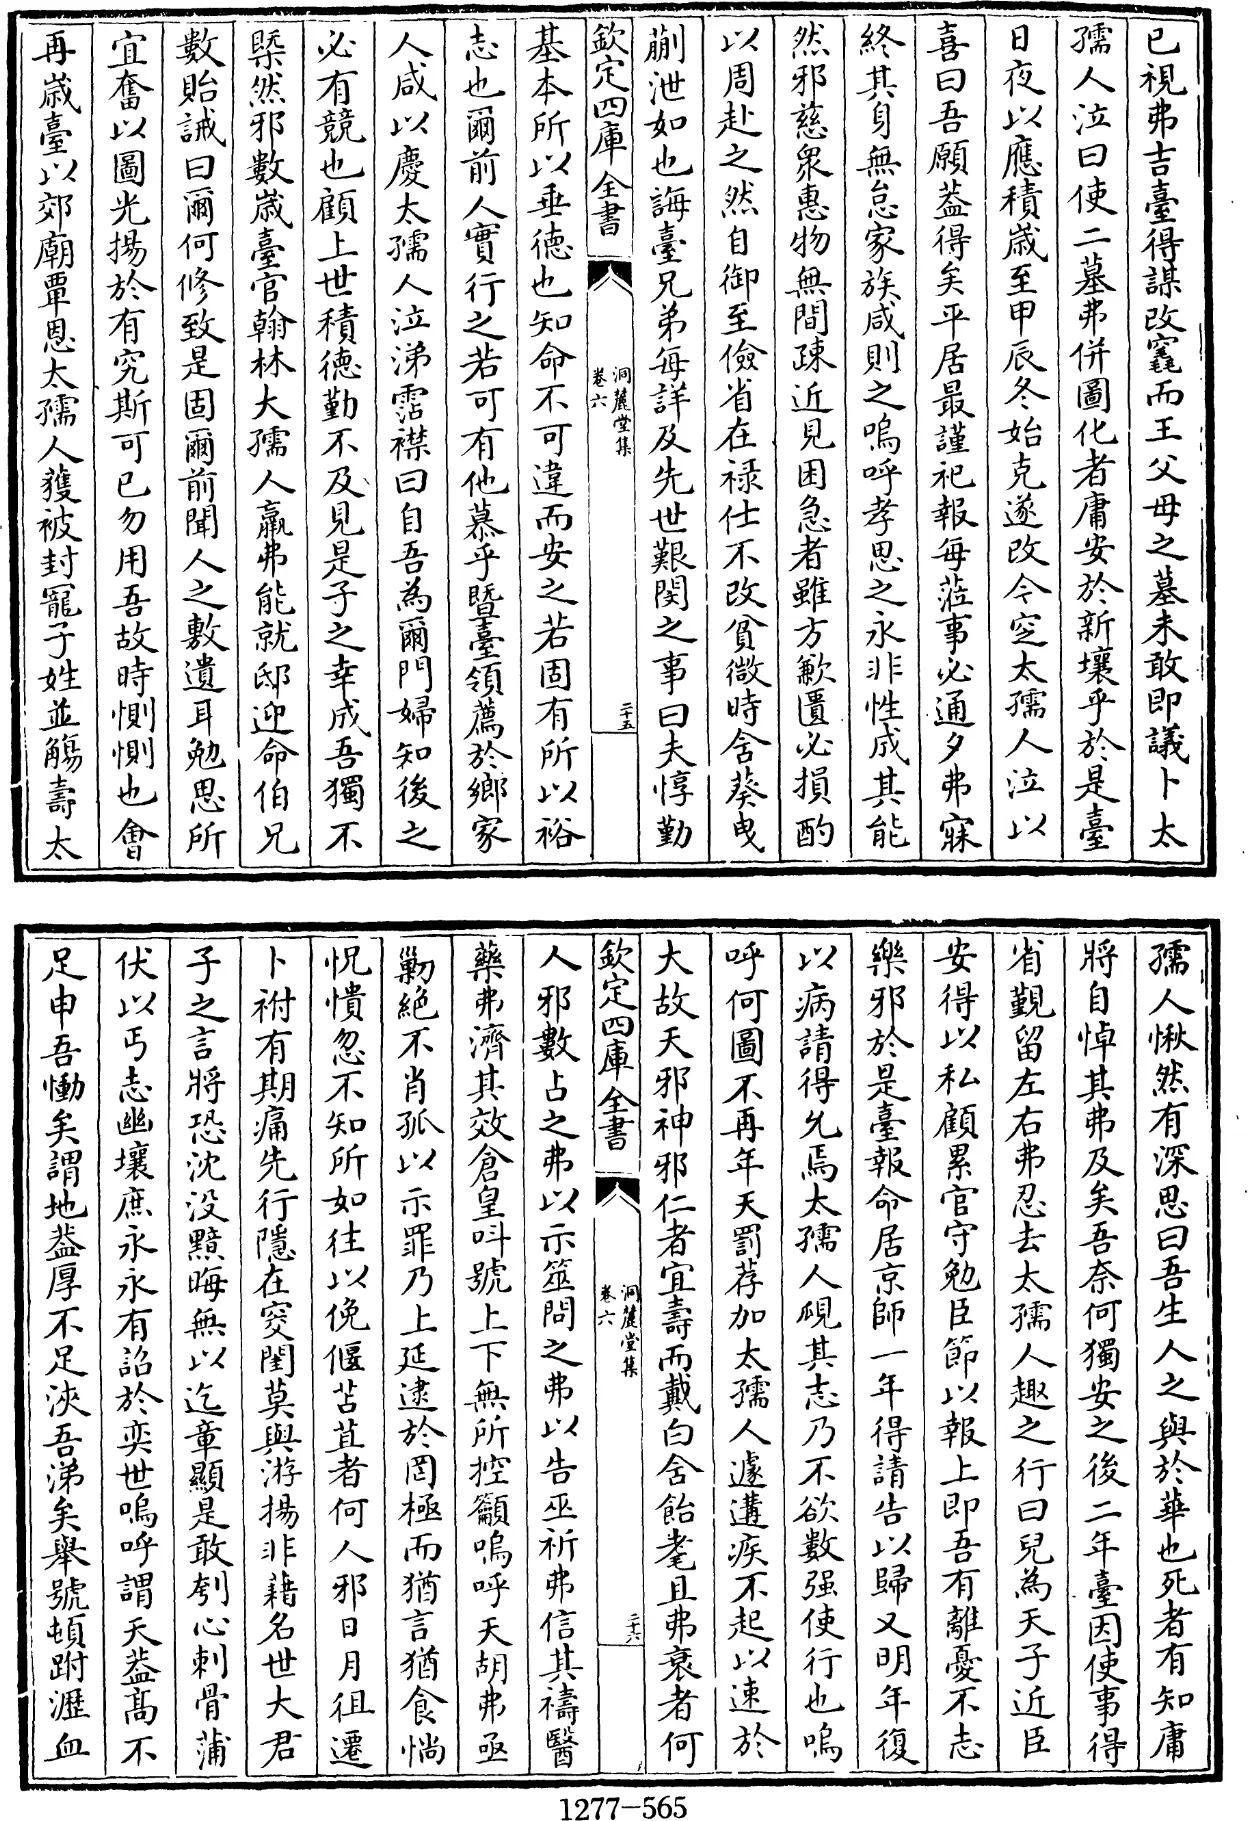 已視弗吉臺得謀改窀而王父母之墓未敢即議卜太
孺人泣曰使二墓弗併圖化者庸安於新壤乎於是臺
日夜以應積歲至甲辰冬始克遂改今空太孺人泣以
喜曰吾願葢得矣平居最謹祀報每蒞事必通夕弗寐
終其身無怠家族咸則之嗚呼孝思之永非性成其能
然邪慈衆惠物無間疎近見困急者雖方歉匱必損酌
以周赴之然自御至儉省在禄仕不改貧微時舍葵曳
蒯泄如也誨臺兄弟每詳及先世艱閔之事曰夫惇勤
欽定四庫全書
洞麓堂集
卷六
二十五
基本所以垂德也知命不可違而安之若固有所以裕
志也爾前人實行之若可有他慕乎暨臺領薦於鄉家
人咸以慶太孺人泣涕霑襟曰自吾為爾門婦知後之
必有競也顧上世積德勤不及見是子之幸成吾獨不
槩然邪數歲臺官翰林大孺人羸弗能就邸迎命伯兄
數貽誡曰爾何修致是固爾前聞人之敷遺耳勉思所
宜奮以圖光揚於有究斯可已勿用吾故時惻惻也會
再歲臺以郊廟覃恩太孺人獲被封寵子姓並觴壽太
孺人愀然有深思曰吾生人之與於華也死者有知庸
將自悼其弗及矣吾奈何獨安之後二年臺因使事得
省覲留左右弗忍去太孺人趣之行曰兒為天子近臣
安得以私顧累官守勉臣節以報上即吾有離憂不志
樂邪於是臺報命居京師一年得請告以歸又明年復
以病請得允焉太孺人覘其志乃不欲數强使行也嗚
呼何圖不再年天罰荐加太孺人遽遘疾不起以速於
大故天邪神邪仁者宜壽而戴白含飴耄且弗衰者何
欽定四庫全書
洞麓堂集
卷六
二十六
人邪數占之弗以示筮問之弗以告巫祈弗信其禱醫
藥弗濟其效倉皇呌號上下無所控籲嗚呼天胡弗亟
勦絕不肖孤以示罪乃上延逮於罔極而猶言猶食惝
怳憒忽不知所如往以俛偃苫苴者何人邪日月徂遷
卜祔有期痛先行隱在窔閨莫與游揚非藉名世大君
子之言將恐沈没黯晦無以迄章顯是敢刳心刺骨蒲
伏以丐志幽壤庶永永有詔於奕世嗚呼謂天葢髙不
足申吾慟矣謂地葢厚不足浹吾涕矣舉號頓跗瀝血
1277-565